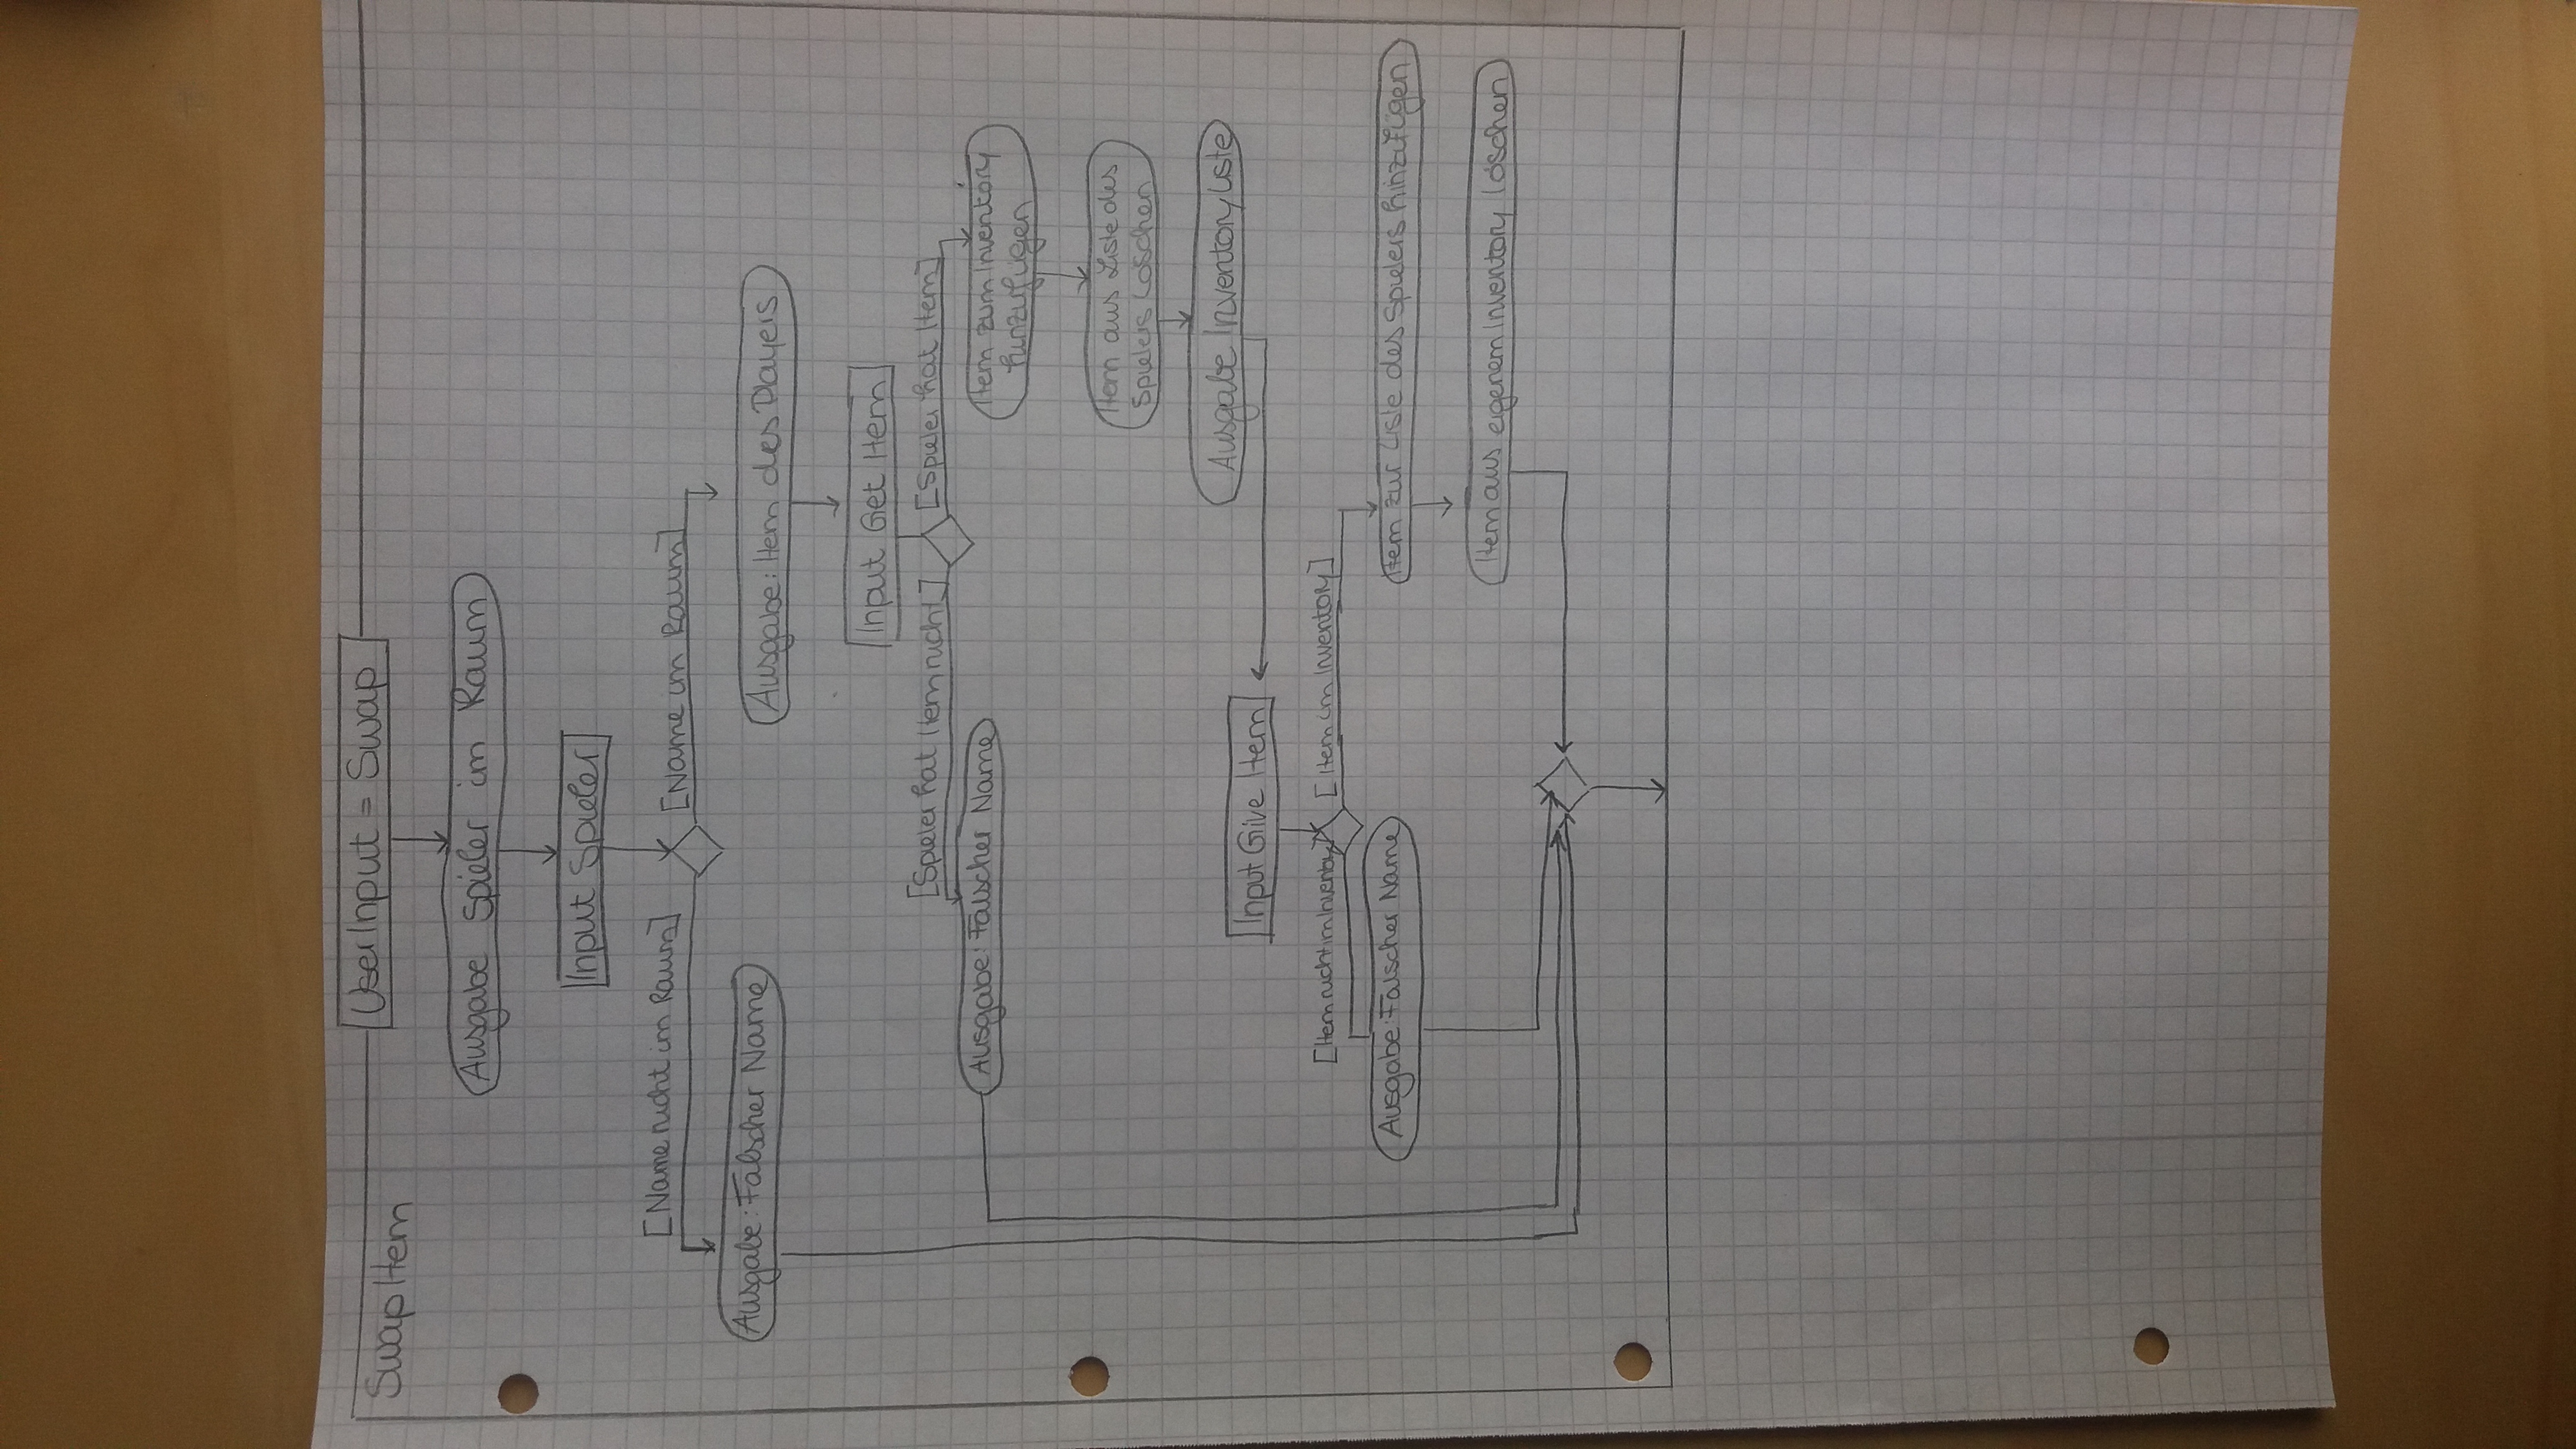 UserInput = Swap
SwapItem
Ausgabe Spieler im Raum
Input Spieler
[Name nicht im Raum]
[Name im Raum]
Ausgabe: Falscher Name
Ausgabe: Item des Players
Input Get Item
[Spieler hat Item nicht]
[Spieler hat Item]
Ausgabe: Falscher Name
Item zum Inventory
hinzufügen
Item aus Liste des
Spielers Löschen
Ausgabe Inventoryliste
Input Give Item
[Item nicht im Inventory]
[Item im Inventory]
Ausgabe: Falscher Name
Item zur Liste des Spielers hinzufügen
Item aus eigenem Inventory löschen